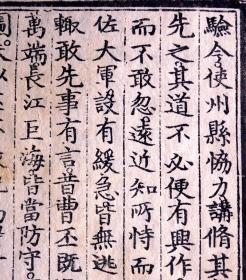 驗令使州縣協力講脩其
先之。其道不必便有興作
而不敢忽。遠近知所恃而
佐大軍設有緩急皆無逃
輙敢先事有言昔曹丕既
萬端長江巨海皆當防守。